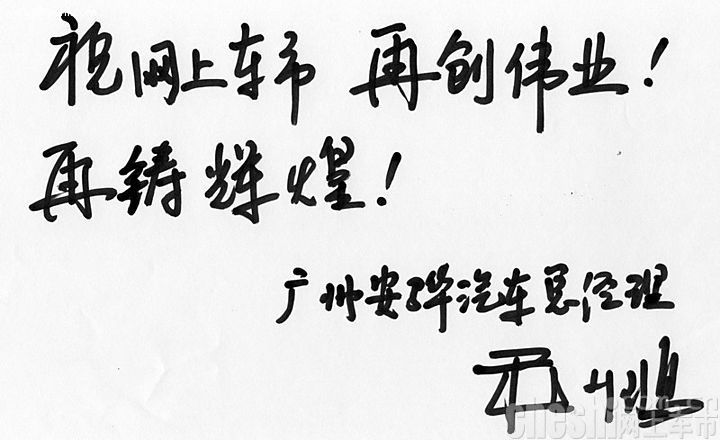 祝网上车市 再创伟业!
再铸辉煌!
广州安骅汽车总经理
cheshi.com.cn
网上车市